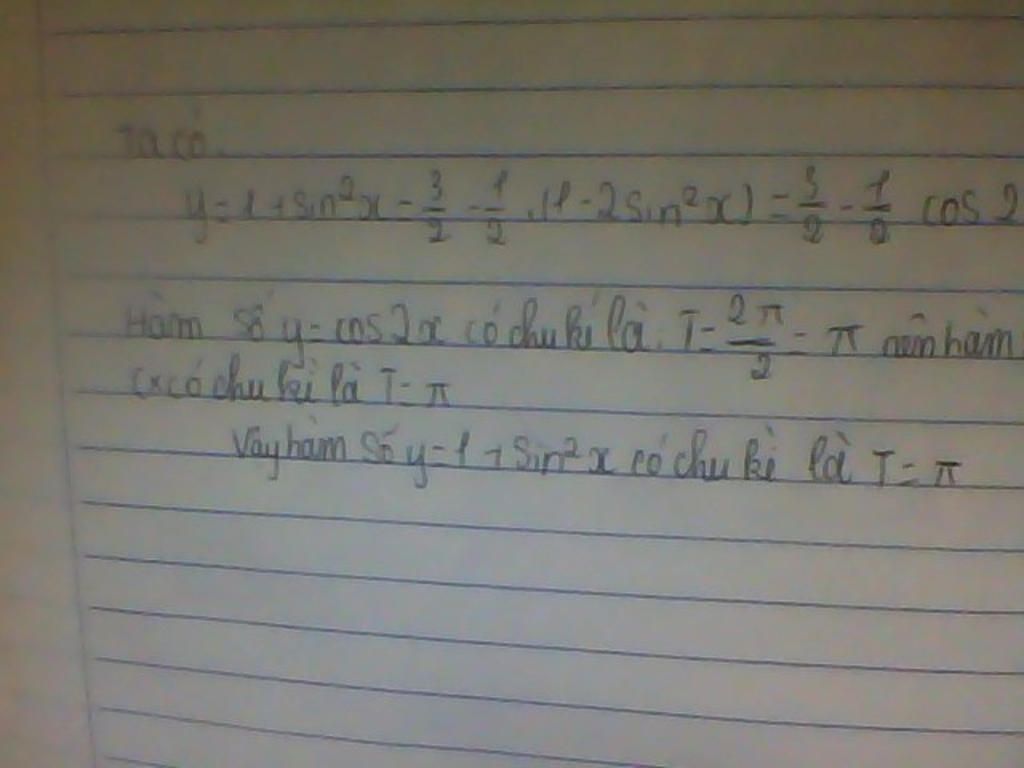 Ta có.
y=1+sin²x=3/2-1/2.(1-2sin²x)=3/2-1/2 cos2
Hàm số y=cos2x có chu kì là T=2π/2=π nên hàm
có chu kì là T=π
Vậy hàm số y=1+sin²x có chu kì là T=π